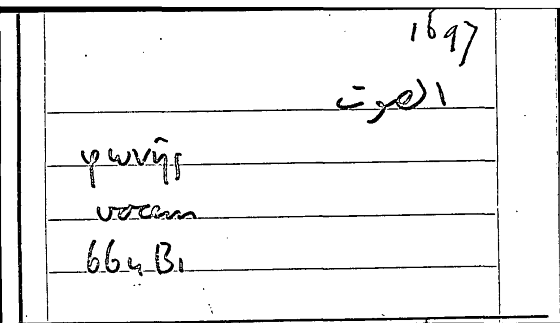 1697
الصوت
φωνῆς
vocem
664 B1